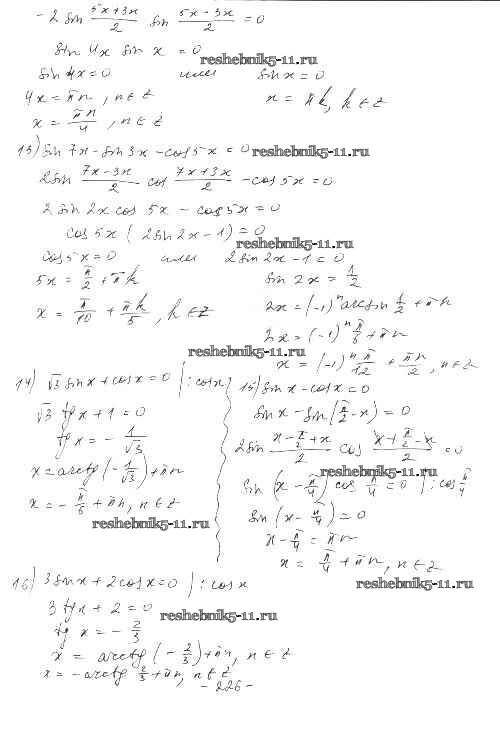 -2 sin (5x+3x)/2 sin (5x-3x)/2 = 0
sin 4x sin x = 0
reshebnik5-11.ru
sin 4x = 0 или sin x = 0
4x = πn, n ∈ Z x = πk, k ∈ Z
x = πn/4, n ∈ Z
13) sin 7x - sin 3x - cos 5x = 0 reshebnik5-11.ru
2 sin (7x-3x)/2 cos (7x+3x)/2 - cos 5x = 0
2 sin 2x cos 5x - cos 5x = 0
cos 5x (2 sin 2x - 1) = 0
reshebnik5-11.ru
cos 5x = 0 или 2 sin 2x - 1 = 0
5x = π/2 + πk sin 2x = 1/2
x = π/10 + πk/5, k ∈ Z 2x = (-1)^n arcsin 1/2 + πn
2x = (-1)^n π/6 + πn
reshebnik5-11.ru
x = (-1)^n π/12 + πn/2, n ∈ Z
14) √3 sin x + cos x = 0 | : cos x
√3 tg x + 1 = 0
tg x = - 1/√3
x = arctg (-1/√3) + πn
x = - π/6 + πn, n ∈ Z
reshebnik5-11.ru
15) sin x - cos x = 0
sin x - sin (π/2 - x) = 0
2 sin (x - π/2 + x)/2 cos (x + π/2 - x)/2 = 0
reshebnik5-11.ru
sin (x - π/4) cos π/4 = 0 | : cos π/4
sin (x - π/4) = 0
x - π/4 = πn
x = π/4 + πn, n ∈ Z
reshebnik5-11.ru
16) 3 sin x + 2 cos x = 0 | : cos x
3 tg x + 2 = 0
reshebnik5-11.ru
tg x = - 2/3
x = arctg (- 2/3) + πn, n ∈ Z
x = - arctg 2/3 + πn, n ∈ Z
- 226 -